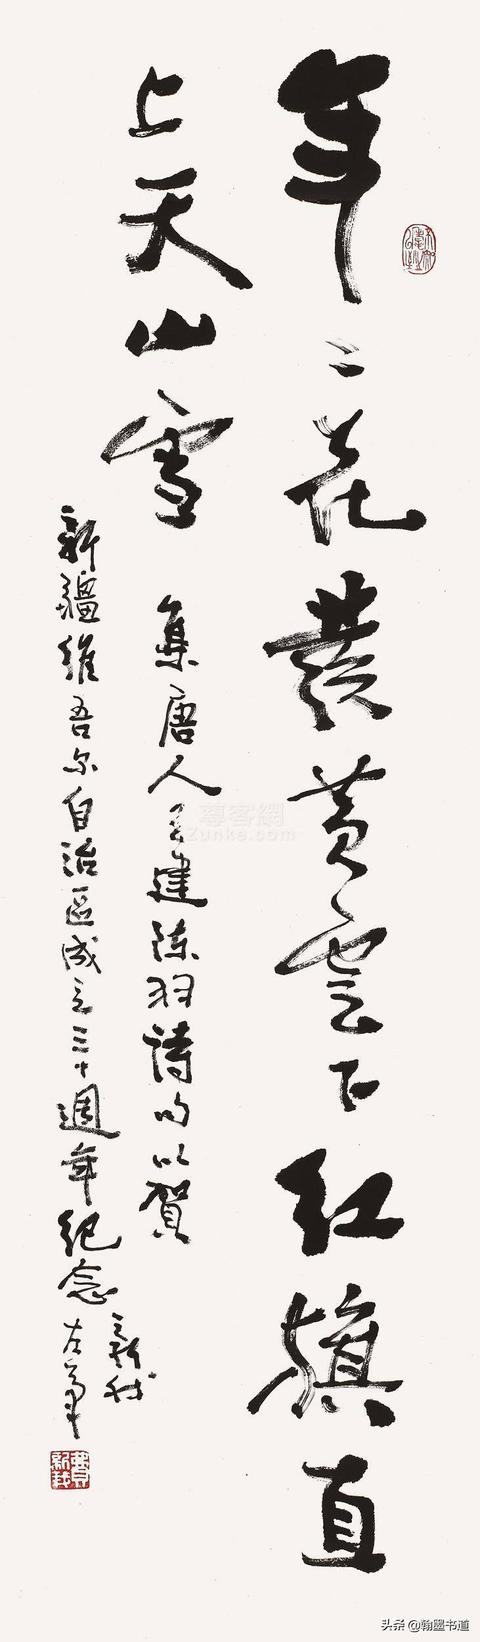 年々花發黄雲下红旗直
上天山雪
集唐人王建陈羽詩句以賀
新疆維吾尔自治区成立三十週年纪念
新我
左筆
費新我
尊客網
Zunke.com
头条 @翰墨书道